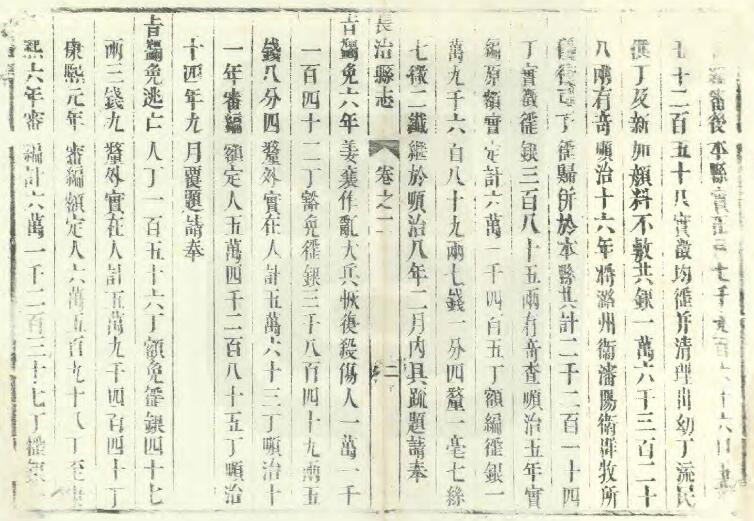 審後本縣實
七十二百五十八實徵均徭并清理出幼丁流民
供丁及新加顏料不敷共銀一萬六千三百二十
八兩有奇順治十六年將潞州衛瀋陽衛群牧所
丁徭歸併於本縣共計二千二百一十四
丁實徵徭銀三百八十五兩有奇查順治五年實
編原額會定計六萬一千四百五丁額編徭銀一
萬九千六百八十九兩七錢一分四釐一毫七絲
七微二纖繼於順治八年二月內具疏題請奉
長治縣志 卷之 二
旨蠲免六年姜襄作亂大兵恢復殺傷人一萬一千
一百四十二丁豁免徭銀三千八百四十九兩五
錢八分四釐外實在人計五萬六十三丁順治十
一年審編額定人五萬四千二百八十五丁順治
十四年九月覆題請奉
旨蠲免逃亡人丁一百五十六丁額免徭銀四十七
兩三錢九釐外實在人計五萬九千四百四十丁
康熙元年審編額定人六萬五百九十八丁至康
熙六年審編計六萬一千二百三十七丁徭銀